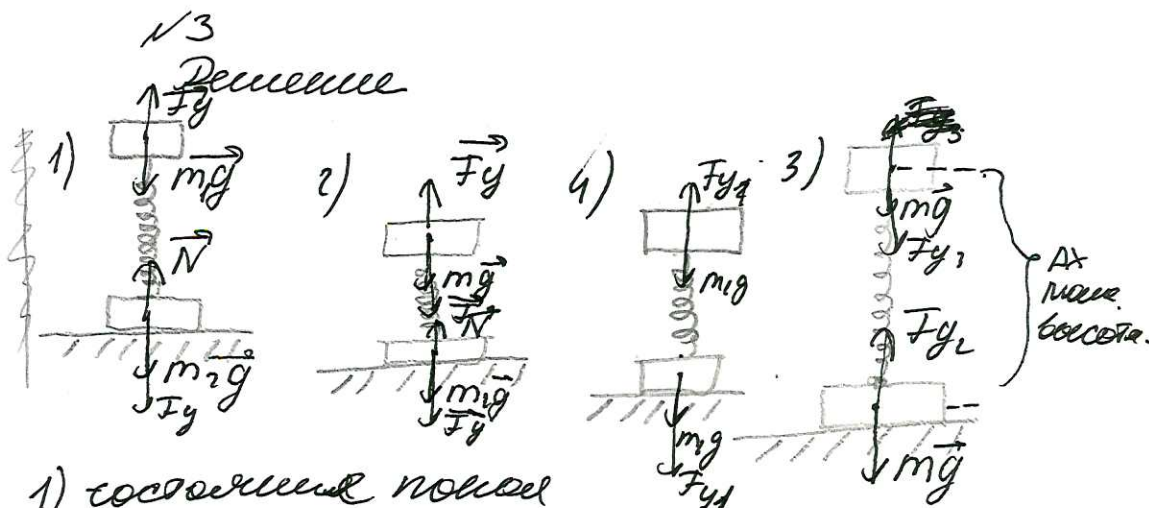 №3
Решение
1) Fy m₁g N m₂g Fy
2) Fy mg F N m₁g Fy
4) Fy₂ m₁g m₁g Fy₁
3) mg Fy₃ Fy₂ mg Δx
высота.
1) состояние покоя